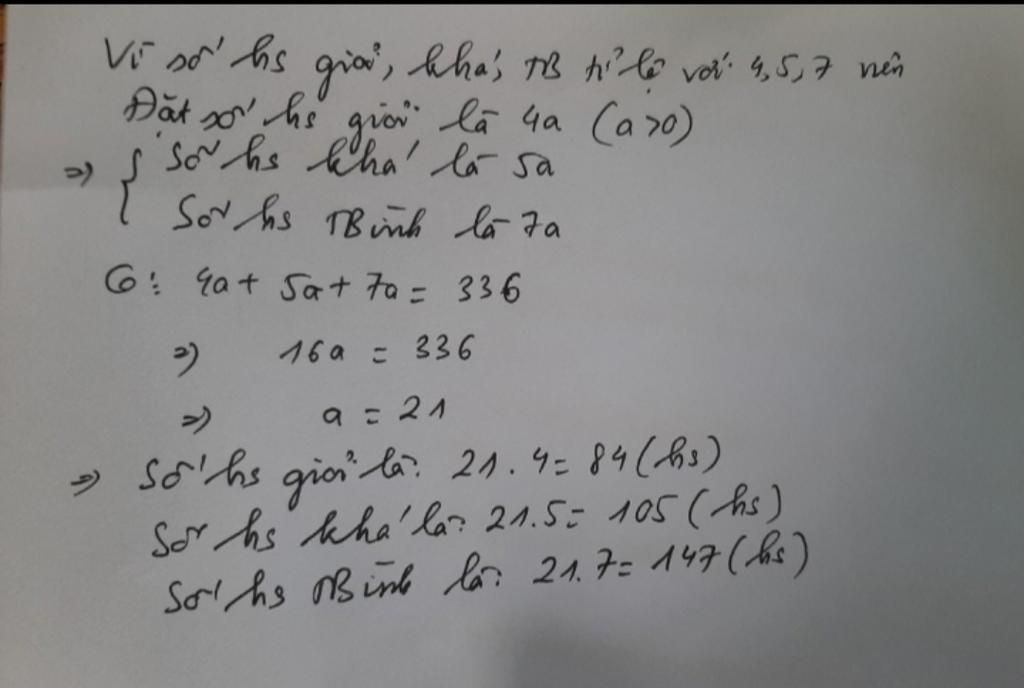 Vì số hs giỏi, khá, TB tỉ lệ với 4, 5, 7 nên
Đặt số hs giỏi là 4a (a>0)
=> { Số hs khá là 5a
Số hs TBình là 7a
Có: 4a + 5a + 7a = 336
=> 16a = 336
=> a = 21
=> Số hs giỏi là: 21.4 = 84 (hs)
Số hs khá là: 21.5 = 105 (hs)
Số hs TBình là: 21.7 = 147 (hs)